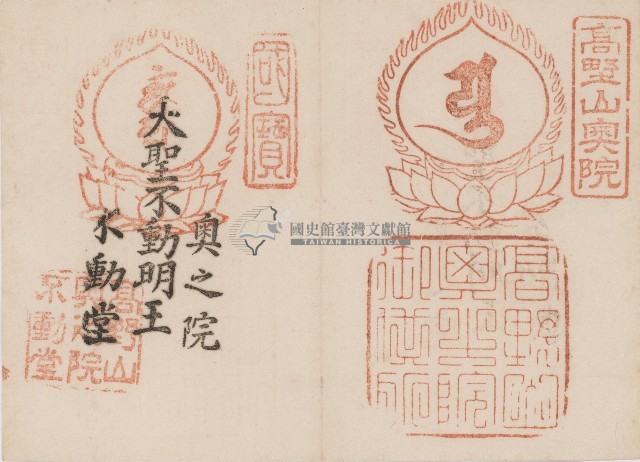 高野山奥院
高野山
奥之院
御廟所
國寶
奧之院
大聖不動明王
不動堂
高野山
奥之院
不動堂
國史館臺灣文獻館
TAIWAN HISTORICA